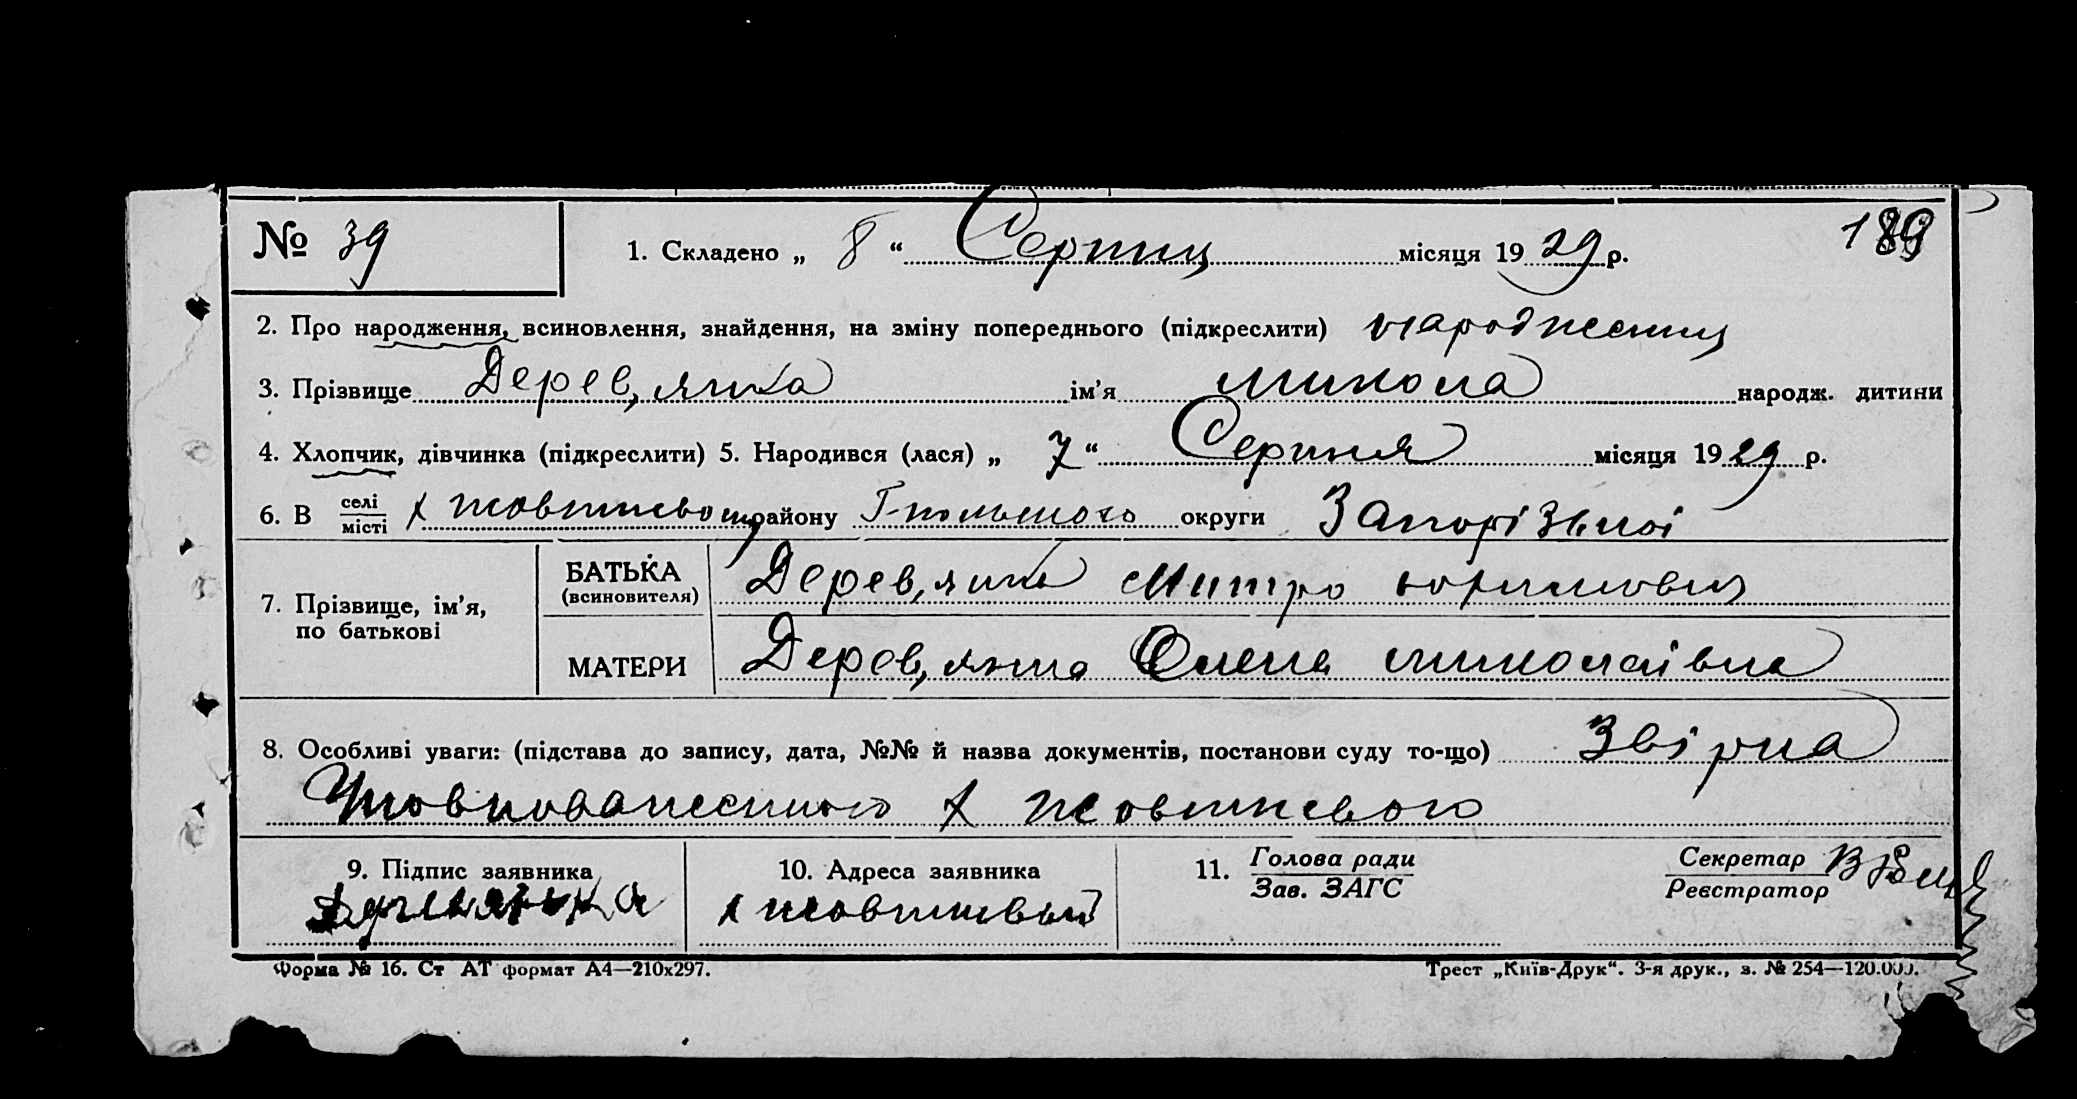 № 39 1. Складено „ 8 “ Серпня місяця 1929 р. 189
2. Про народження, всиновлення, знайдення, на зміну попереднього (підкреслити) народження
3. Прізвище Дерев,янка ім’я микола народж. дитини
4. Хлопчик, дівчинка (підкреслити) 5. Народився (лася) „ 7 “ Серпня місяця 1929 р.
6. В селі/місті х жовтневому району округи Запорізької
7. Прізвище, ім’я, по батькові
БАТЬКА (всиновителя) Дерев,янко Митро юхимович
МАТЕРИ Дерев,янко Олена миколаівна
8. Особливі уваги: (підстава до запису, дата, №№ й назва документів, постанови суду то-що) Звірка
Уповноваженного х жовтневого
9. Підпис заявника 10. Адреса заявника 11. Голова ради/Зав. ЗАГС Секретар/Реєстратор
х жовтневий
Форма № 16. Ст АТ формат А4—210х297. Трест „Київ-Друк“. 3-я друк., з. № 254—120.000.